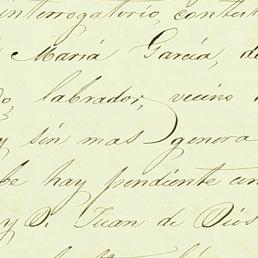 interrogatorio, contest
María García, de
labrador, vecino
y sin mas genera
be hay pendiente un
y D. Juan de Dios